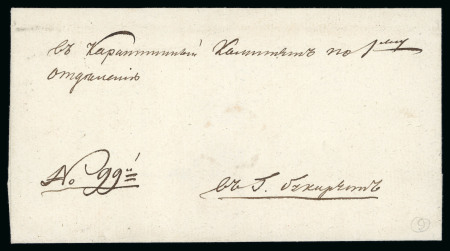 въ Карантинный Комитетъ по 1му
отделенiю
№ 99й
въ Г. Букарестъ